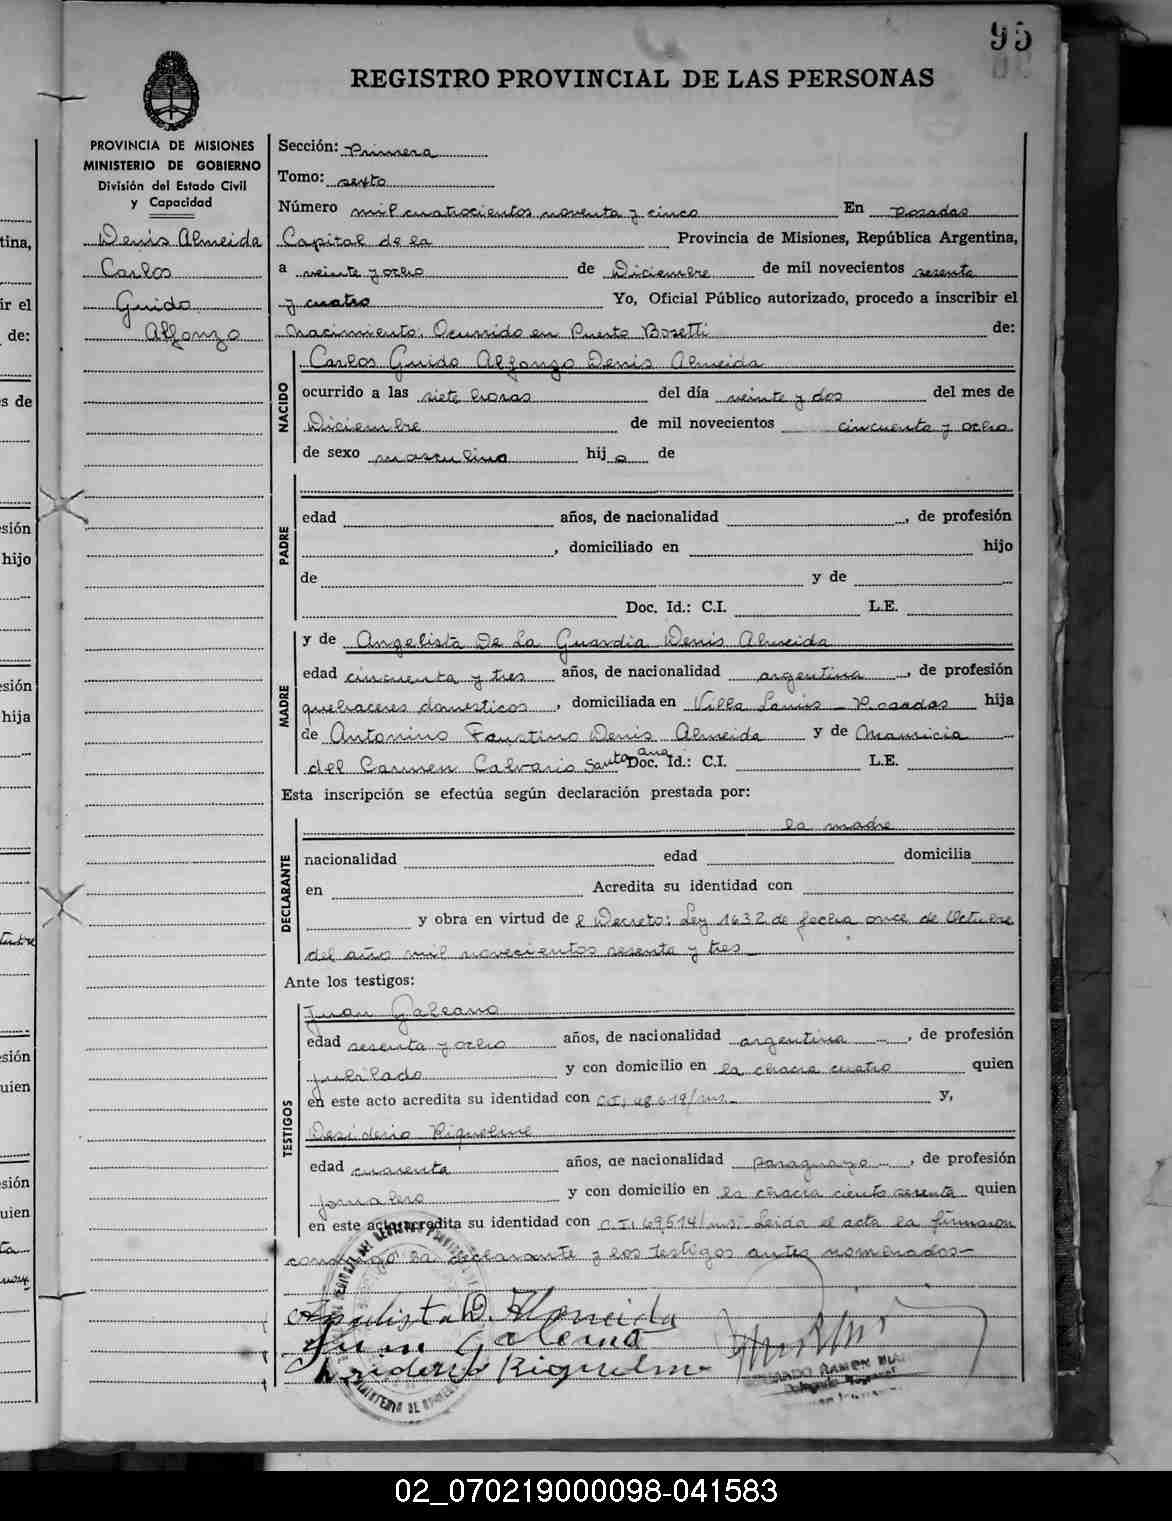 95
REGISTRO PROVINCIAL DE LAS PERSONAS
PROVINCIA DE MISIONES
MINISTERIO DE GOBIERNO
División del Estado Civil
y Capacidad
Denis Almeida
Carlos
Guido
Alfonzo
Sección: Primera
Tomo: sexto
Número mil cuatrocientos noventa y cinco En Posadas
Capital de la Provincia de Misiones, República Argentina,
a veinte y ocho de Diciembre de mil novecientos sesenta
y cuatro Yo, Oficial Público autorizado, procedo a inscribir el
nacimiento. Ocurrido en Puerto Bosetti de:
NACIDO
Carlos Guido Alfonzo Denis Almeida
ocurrido a las siete horas del día veinte y dos del mes de
Diciembre de mil novecientos cincuenta y ocho
de sexo masculino hijo de
PADRE
edad años, de nacionalidad , de profesión
, domiciliado en hijo
de y de
Doc. Id.: C.I. L.E.
MADRE
y de Angelista De La Guardia Denis Almeida
edad cincuenta y tres años, de nacionalidad argentina , de profesión
quehaceres domesticos , domiciliada en Villa Lanús - Posadas hija
de Antonino Faustino Denis Almeida y de Mauricia
del Carmen Calvario Santa ana Doc. Id.: C.I. L.E.
Esta inscripción se efectúa según declaración prestada por:
DECLARANTE
la madre
nacionalidad edad domicilia
en Acredita su identidad con
y obra en virtud de l Decreto: Ley 1632 de fecha once de Octubre
del año mil novecientos sesenta y tres
Ante los testigos:
TESTIGOS
Juan Galeano
edad sesenta y ocho años, de nacionalidad argentina , de profesión
jubilado y con domicilio en la chacra cuatro quien
en este acto acredita su identidad con C.I. 48.619/ms. y,
Desiderio Riquelme
edad cuarenta años, de nacionalidad paraguayo , de profesión
jornalero y con domicilio en la chacra ciento sesenta quien
en este acto acredita su identidad con C.I. 69.514/ms. Leida el acta la firmaron
conmigo la declarante y los testigos antes nombrados-
Angelista D. Almeida
Juan Galeano
Desiderio Riquelme
RAMON
02_070219000098-041583